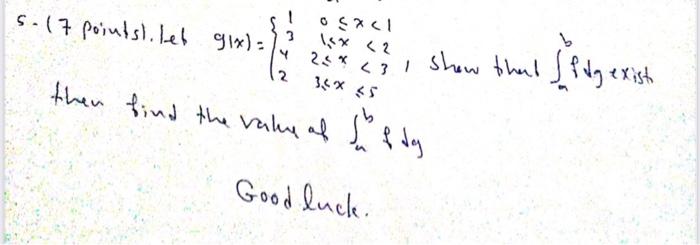 5- (7 points). Let g(x) = { 1 0 ≤ x < 1
3 1 ≤ x < 2
4 2 ≤ x < 3
2 3 ≤ x ≤ 5
, show that ∫_a^b f dg exist
then find the value of ∫_a^b f dg
Good luck.